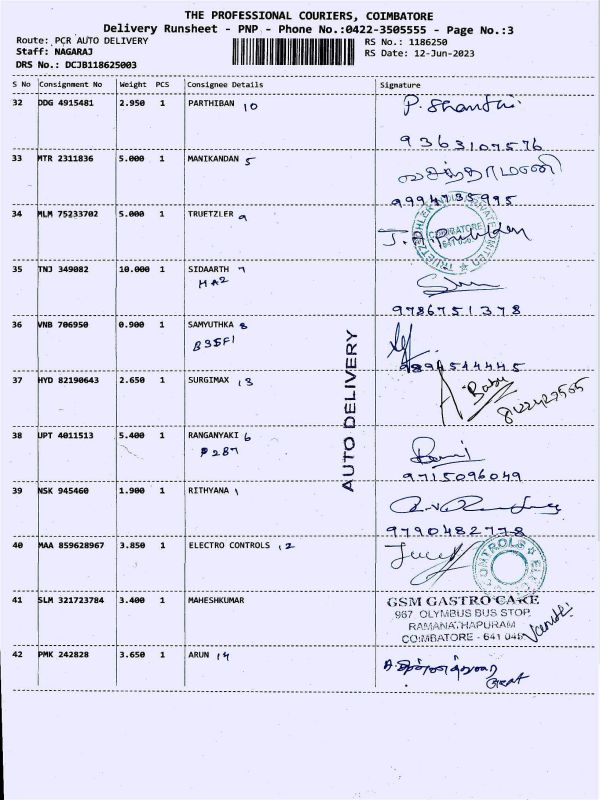 THE PROFESSIONAL COURIERS, COIMBATORE
Delivery Runsheet - PNP - Phone No.:0422-3505555 - Page No.:3
Route: PCR AUTO DELIVERY
RS No.: 1186250
Staff: NAGARAJ
RS Date: 12-Jun-2023
DRS No.: DCJB118625003
S No Consignment No Weight PCS Consignee Details Signature
32 DDG 4915481 2.950 1 PARTHIBAN 10 P. Shanthi
9363107576
33 MTR 2311836 5.000 1 MANIKANDAN 5 வசந்தாமணி
9994735995
34 MLM 75233702 5.000 1 TRUETZLER 9
COIMBATORE
35 TNJ 349082 10.000 1 SIDAARTH 7
MA2
9786751378
36 VNB 706950 0.900 1 SAMYUTHKA 8
B35F1
9894544445
37 HYD 82190643 2.650 1 SURGIMAX 13 A. Babu
8122427565
38 UPT 4011513 5.400 1 RANGANYAKI 6
P287
9715096049
39 NSK 945460 1.900 1 RITHYANA 1
9790482778
40 MAA 859628967 3.850 1 ELECTRO CONTROLS 12
CONTROLS
41 SLM 321723784 3.400 1 MAHESHKUMAR GSM GASTRO CARE
967 OLYMBUS BUS STOP
RAMANATHAPURAM
COIMBATORE - 641 045
42 PMK 242828 3.650 1 ARUN 14
AUTO DELIVERY